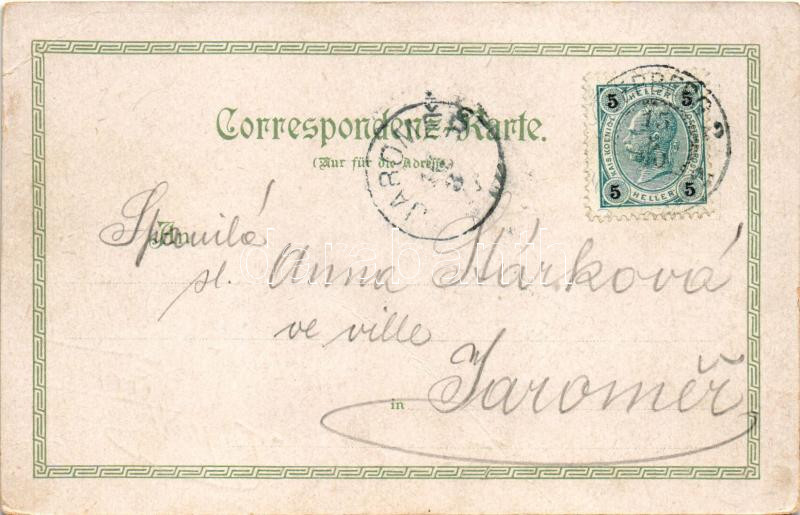 Correspondenz-Karte.
(Nur für die Adresse)
5 HELLER 5
5 HELLER 5
JAROM
15
An
Spanilá
sl. Anna Stárková
ve ville
in Jaroměř